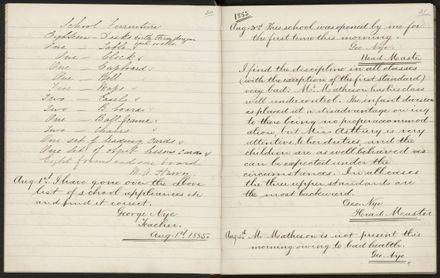 School Furniture
Eighteen - Desks with
One - Table
One - Clock
One - Cupboard
One - Bell
Five - Maps
Two - Easels
Two - B. boards
One - Ball-frame
Two - Chairs
One set of Reading Cards
One set of object lesson Cards
Eight framed and one board
Aug. 1st I have gone over the above
list of school appliances etc
and find it correct.
George Nye
Teacher.
Aug. 1st 1885.
1885
Aug. 3rd This school was opened by me for
the first time this morning.
Geo. Nye.
Head Master
I find the discipline in all classes
(with the exception of the first standard)
very bad. Mr. Matheson has his class
well under control. The infant division
is placed at a disadvantage owing
to there being no proper accommod-
ation, but Miss is very
attentive to her duties, and the
children are as well behaved as
can be expected under the
circumstances. In all cases
the three upper standards are
the most backward.
Geo. Nye
Head Master
Mr. Matheson is not present this
morning owing to bad health.
Geo. Nye.